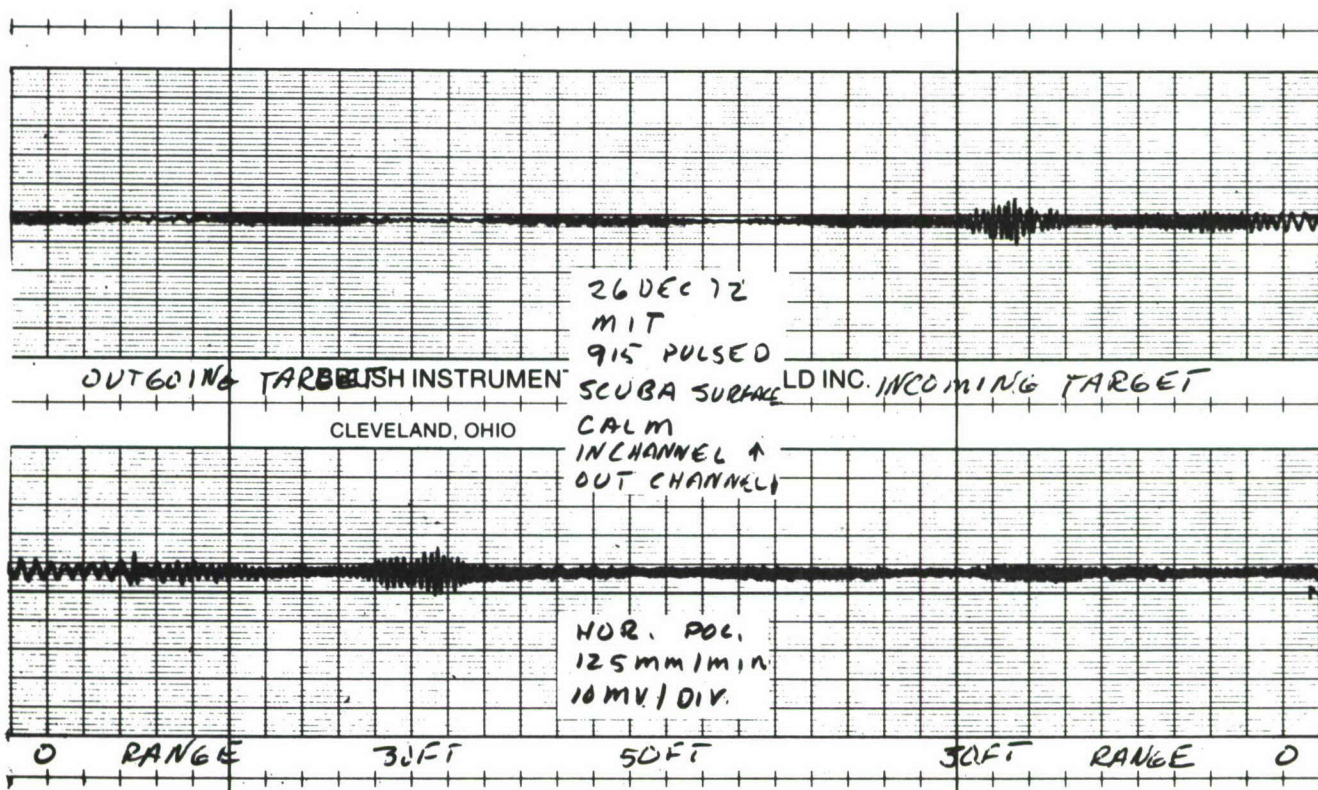 26 DEC 72
MIT
915 PULSED
SCUBA SURFACE
CALM
INCHANNEL ↑
OUT CHANNEL↓
OUTGOING TARGET BRUSH INSTRUMEN LD INC. INCOMING TARGET
CLEVELAND, OHIO
HOR. POL.
125mm/min
10 MV/DIV.
0 RANGE 30FT 50FT 30FT RANGE 0